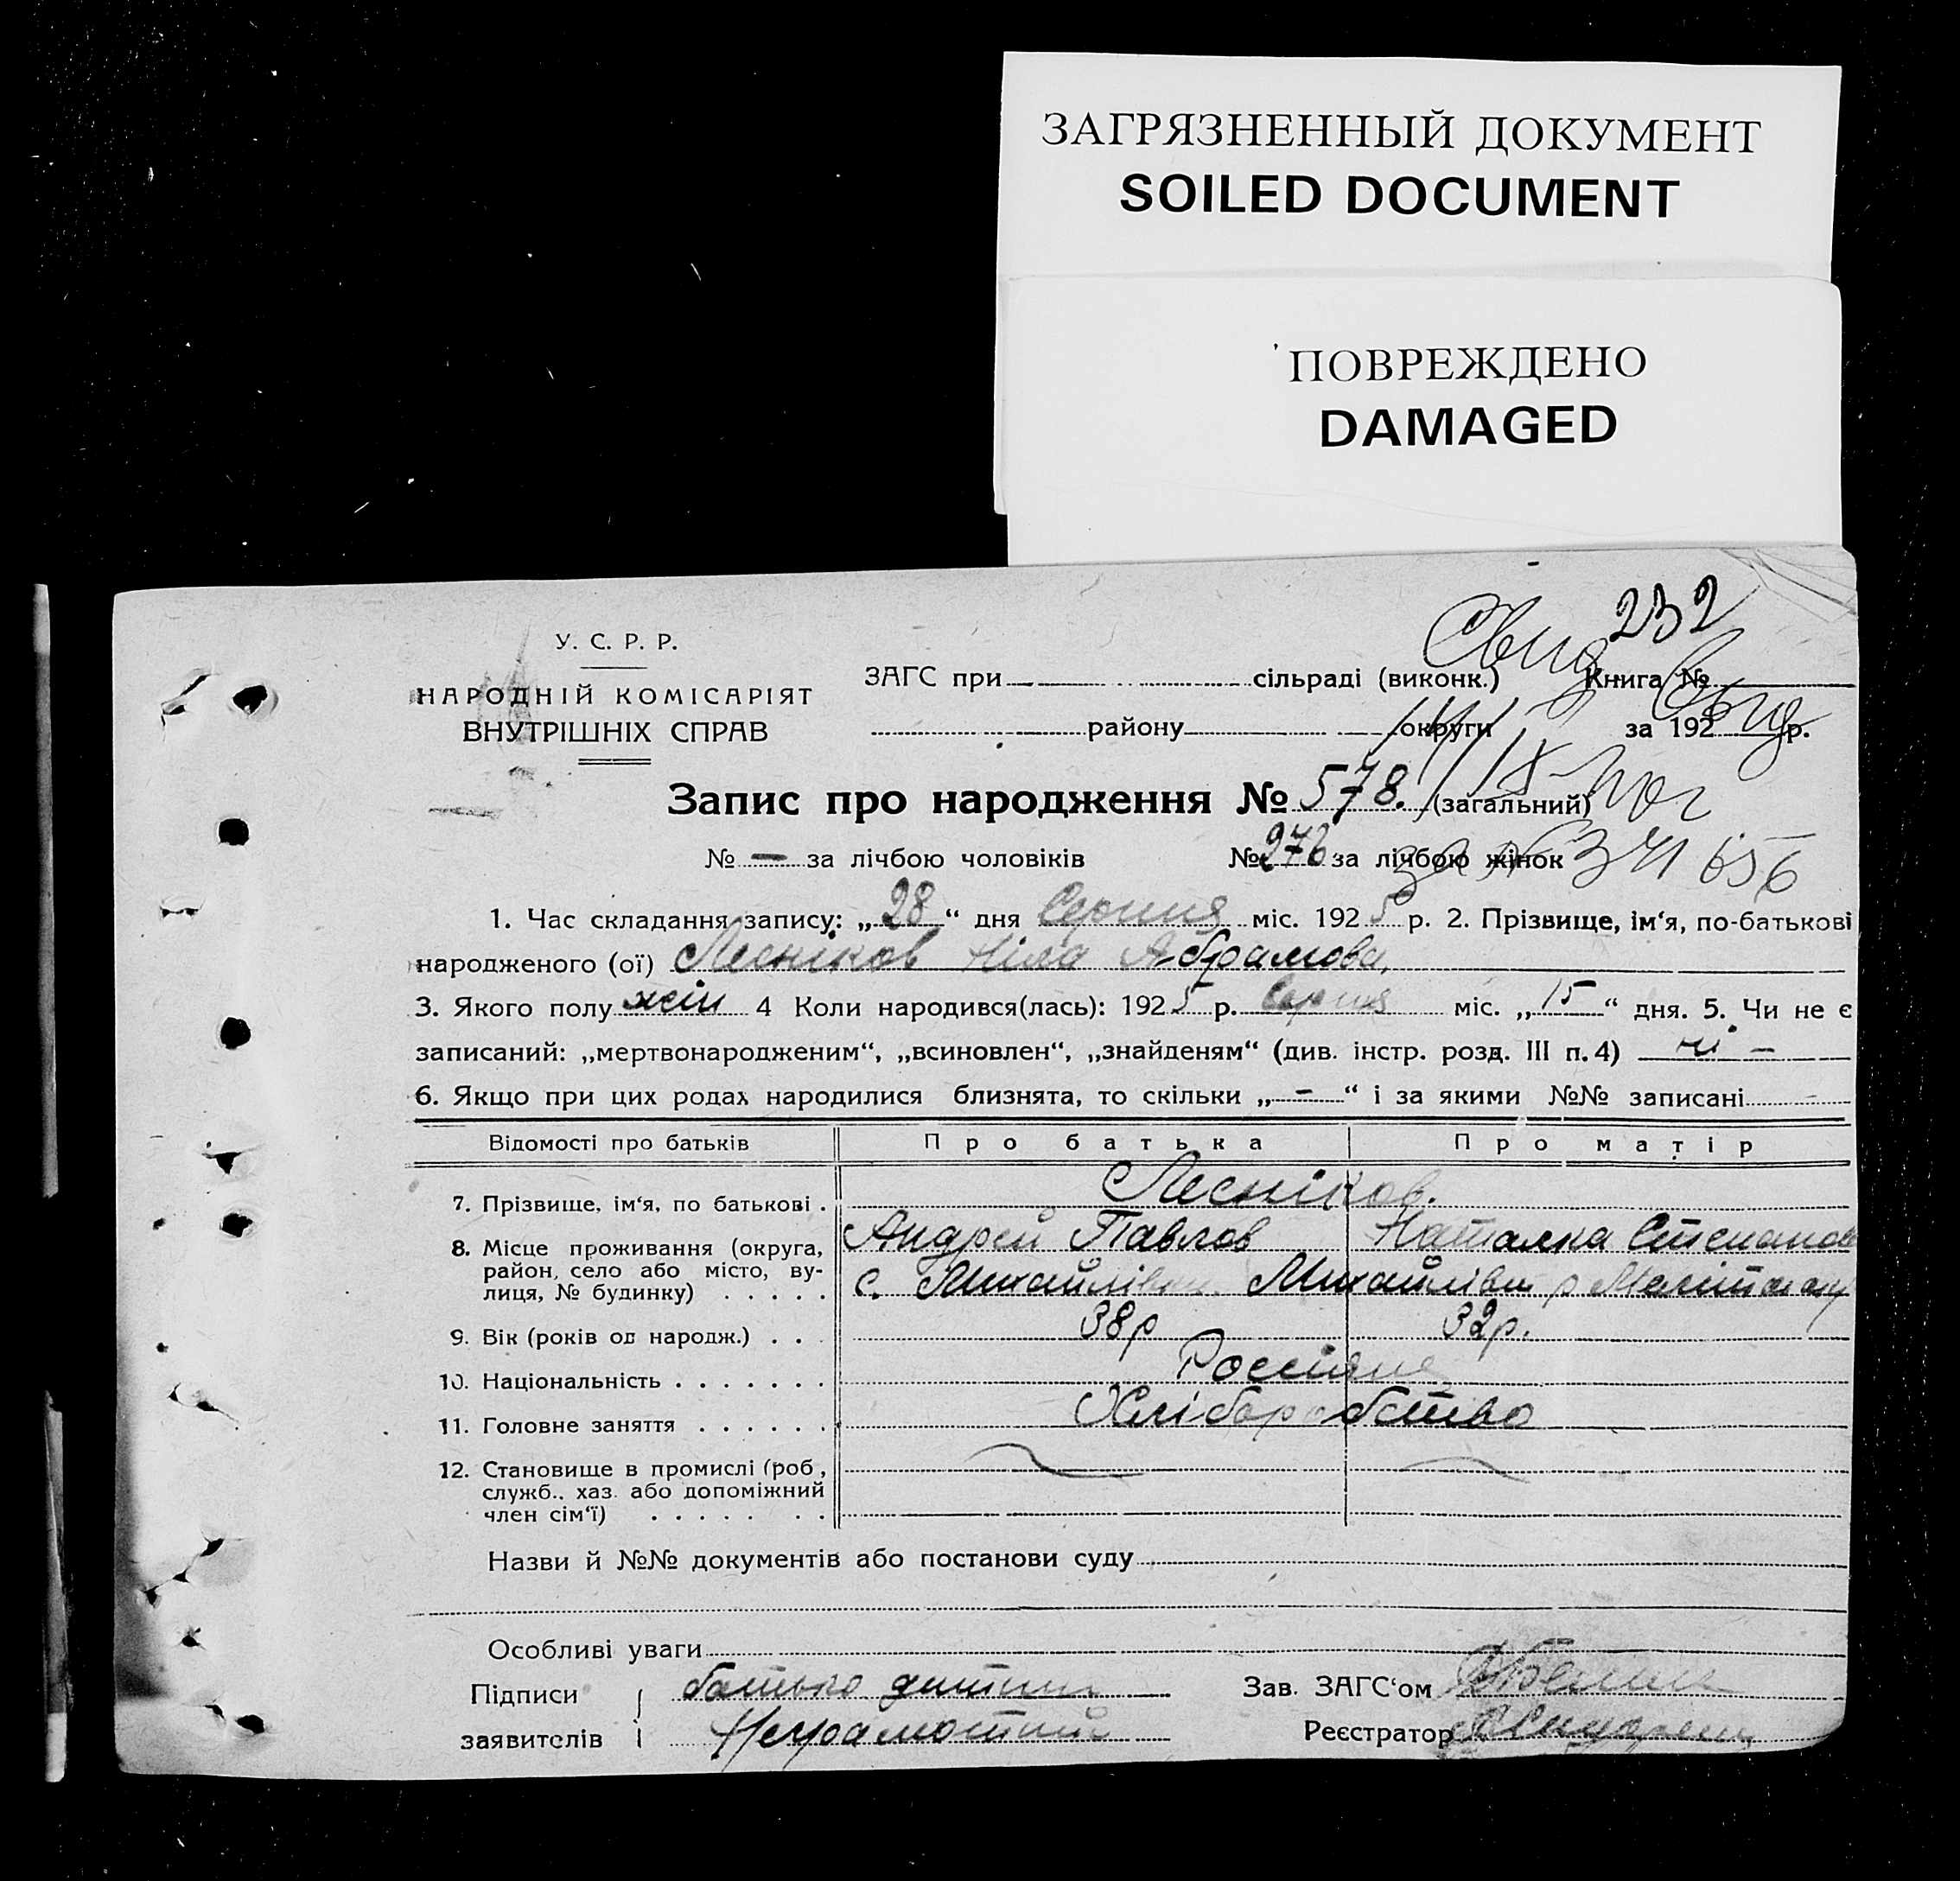 ЗАГРЯЗНЕННЫЙ ДОКУМЕНТ
SOILED DOCUMENT
ПОВРЕЖДЕНО
DAMAGED
232
Свид
У. С. Р. Р.
НАРОДНІЙ КОМІСАРІЯТ
ВНУТРІШНІХ СПРАВ
ЗАГС при сільраді (виконк.) Книга №
району округи за 192 р.
Свид
Запис про народження № 578. (загальний)
№ — за лічбою чоловіків № 276 за лічбою жінок
1. Час складання запису: „28“ дня Серпня міс. 1925 р. 2. Прізвище, ім‘я, по-батькові
народженого (ої) Лесніков Ніла Абрамова,
3. Якого полу жін 4 Коли народився(лась): 1925 р. Серпня міс. „15“ дня. 5. Чи не є
записаний: „мертвонародженим“, „всиновлен“, „знайденям“ (див. інстр. розд. III п. 4) ні —
6. Якщо при цих родах народилися близнята, то скільки „–“ і за якими №№ записані –
Відомості про батьків Про батька Про матір
7. Прізвище, ім‘я, по батькові . Лесніков.
Андрей Павлов Наталка Степанов
8. Місце проживання (округа,
район, село або місто, ву-
лиця, № будинку) . . . . . с. Михайлівки Михайлівки р
9. Вік (років од народж.) . . . 38р 32р.
10. Національність . . . . . . . Россіяне
11. Головне заняття . . . . . . Хліборобство
12. Становище в промислі (роб,
служб., хаз. або допоміжний
член сім‘ї) . . . . . . .
Назви й №№ документів або постанови суду
Особливі уваги
Підписи батько дитини Зав. ЗАГС‘ом
заявителів Неграмотний Реєстратор